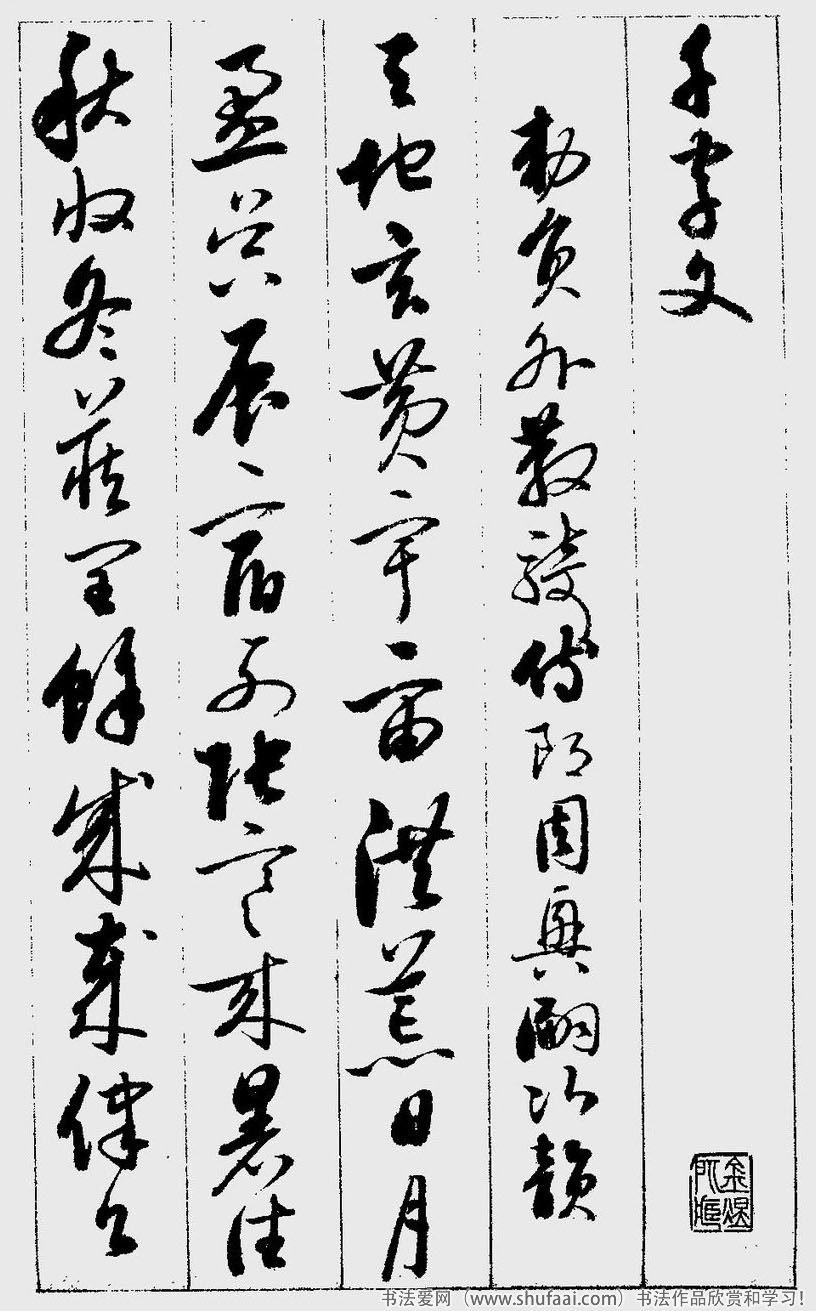 千字文
勅員外散騎侍郎周興嗣次韻
天地玄黃宇宙洪荒日月
盈昃辰宿列張寒來暑往
秋收冬藏閏餘成歲律呂
书法爱网（www.shufaai.com）书法作品欣赏和学习！